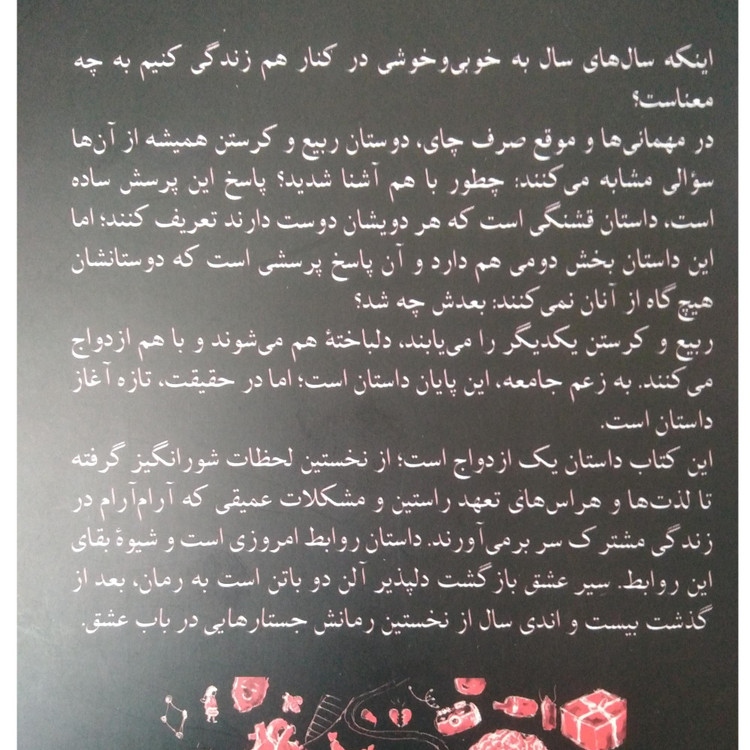 اینکه سال‌های سال به خوبی‌وخوشی در کنار هم زندگی کنیم به چه
معناست؟
در مهمانی‌ها و موقع صرف چای، دوستان ربیع و کرستن همیشه از آن‌ها
سؤالی مشابه می‌کنند: چطور با هم آشنا شدید؟ پاسخ این پرسش ساده
است، داستان قشنگی است که هر دویشان دوست دارند تعریف کنند؛ اما
این داستان بخش دومی هم دارد و آن پاسخ پرسشی است که دوستانشان
هیچ‌گاه از آنان نمی‌کنند: بعدش چه شد؟
ربیع و کرستن یکدیگر را می‌یابند، دلباختهٔ هم می‌شوند و با هم ازدواج
می‌کنند. به زعم جامعه، این پایان داستان است؛ اما در حقیقت، تازه آغاز
داستان است.
این کتاب داستان یک ازدواج است؛ از نخستین لحظات شورانگیز گرفته
تا لذت‌ها و هراس‌های تعهد راستین و مشکلات عمیقی که آرام‌آرام در
زندگی مشترک سر برمی‌آورند. داستان روابط امروزی است و شیوهٔ بقای
این روابط. سیر عشق بازگشت دلپذیر آلن دو باتن است به رمان، بعد از
گذشت بیست و اندی سال از نخستین رمانش جستارهایی در باب عشق.